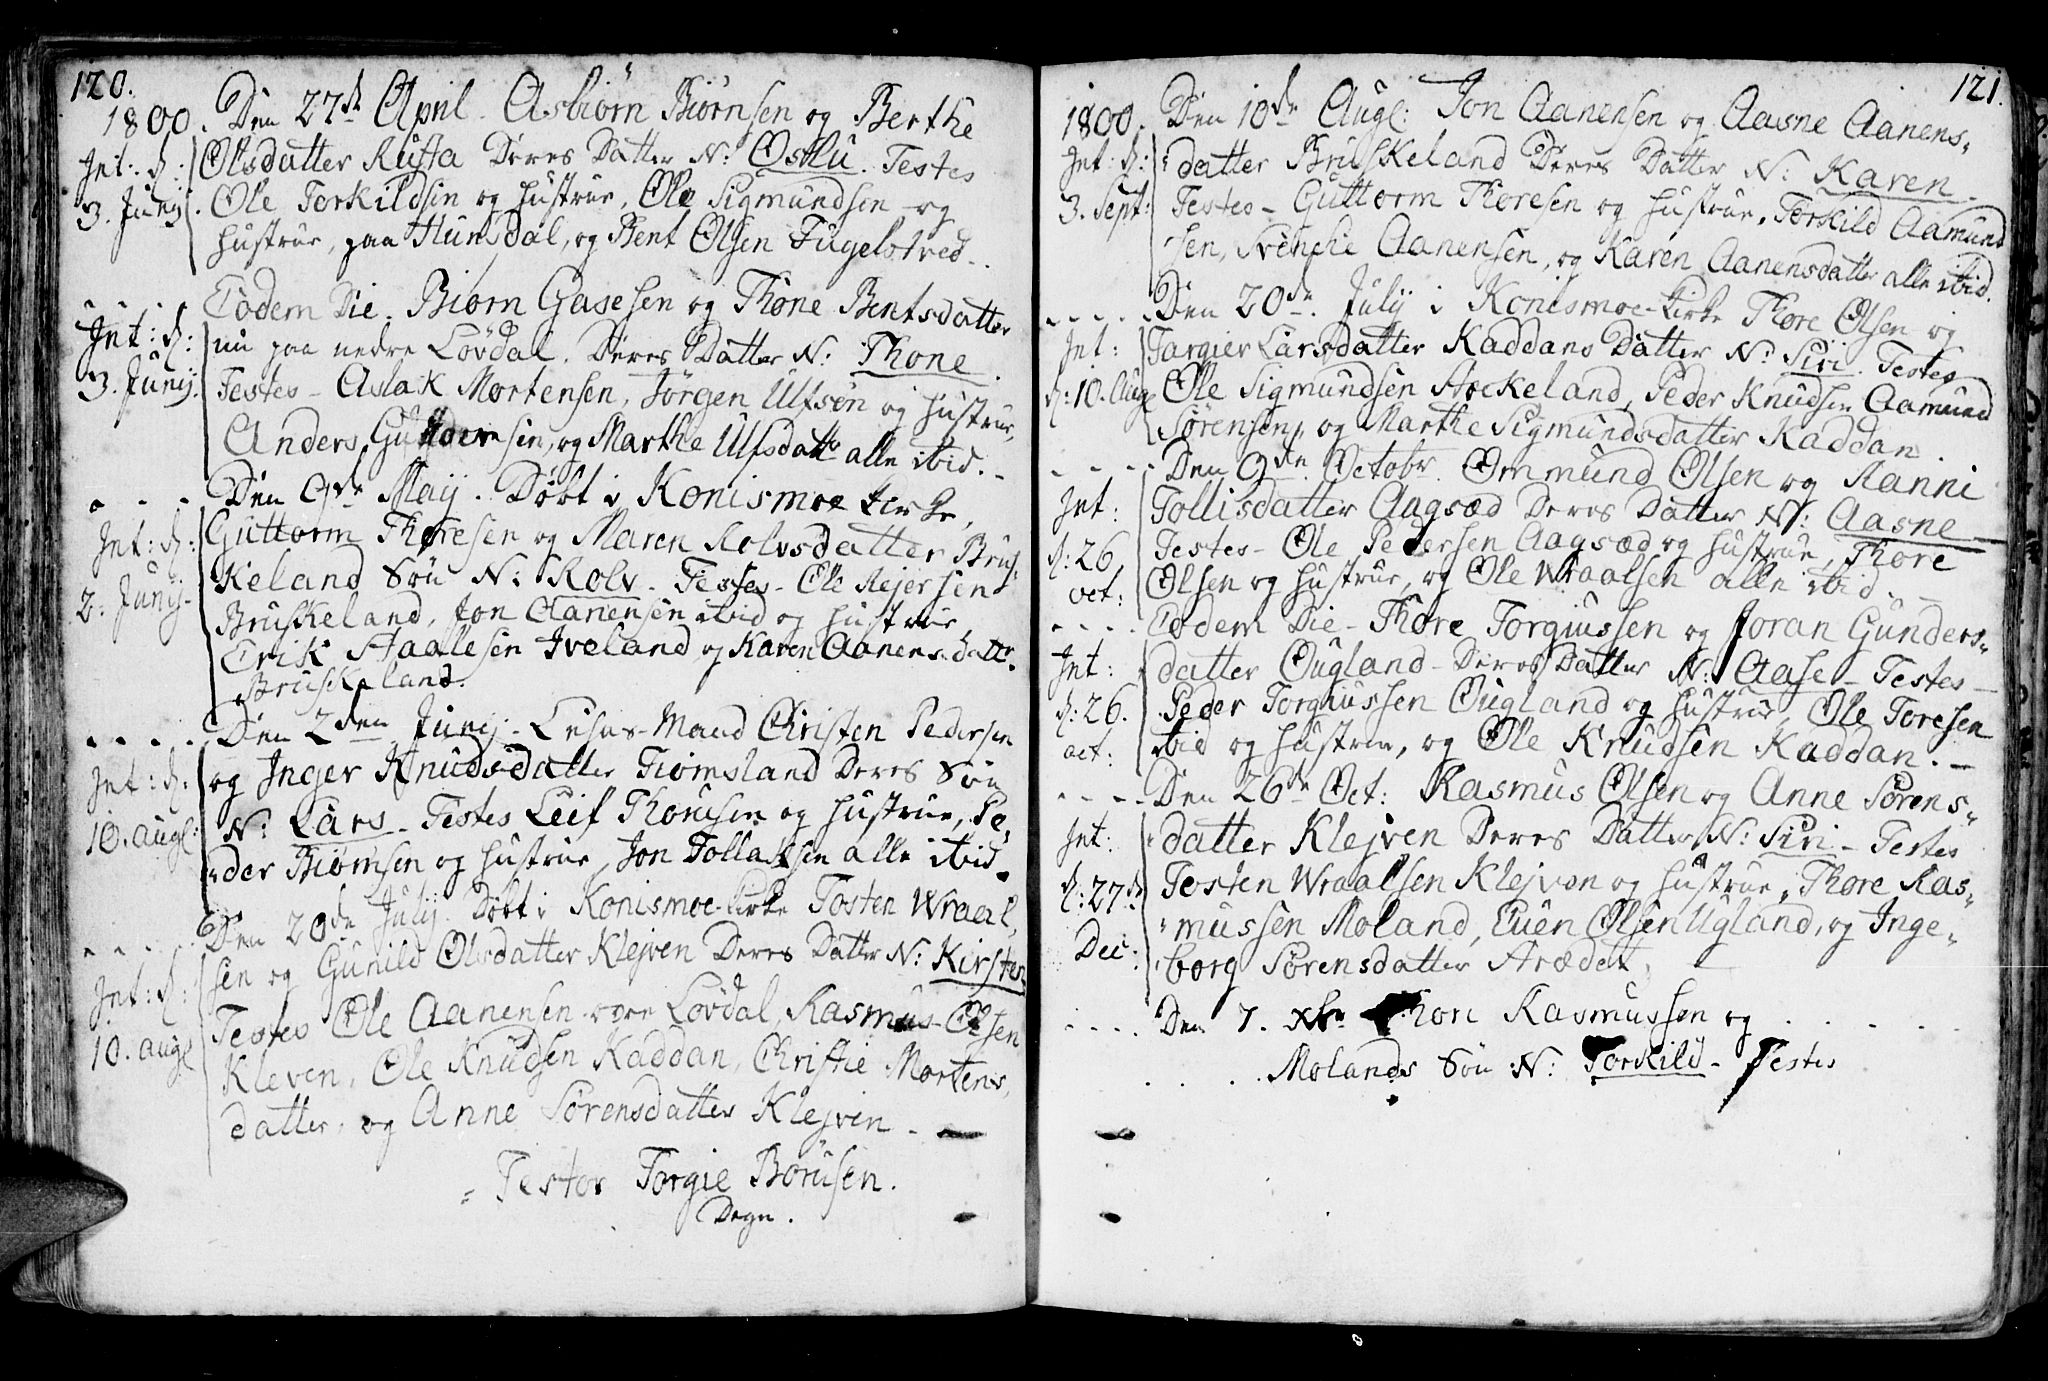 120.
1800. Den 27de April. Asbiørn Biørnsen og Berthe
Int: d: Olsdatter Rusta Deres Datter N: Ostlu. Testes
3. Junij. Ole Torkildsen og Hustrue, Ole Sigmundsen og
Hustrue, paa Hunsdal, og Bent Olsen Fugelstved.
Eodem Die. Biørn Gasesen og Thone Bentsdatter
Int: d: nu paa nedre Løvdal. Deres Datter N: Thone.
3. Junij. Testes - Aslak Mortensen, Jørgen Ulfsøn og Hustrue,
Anders, og Marthe Ulfsdattr alle ibid.
Den 9de Maij. Døbt i Konismoe Kirke,
Int: d: Guttorm Thoresen og Maren Rolvsdatter Brus-
keland Søn N: Rolv. Testes - Ole Rejersen
2. Junij. Bruskeland, Jon Aanensen ibid og Hustrue
Erik Staalesen Iveland og Karen Aanensdattr.
Bruskeland.
Den 2den Junij. Lehns-Mand Christen Pedersen
Int: d: og Inger Knudsdatter Fiømsland Deres Søn
10. Augl: N: Lars. Testes Leif Thomesen og Hustrue, Pe-
der Biørnsen og Hustrue, Jon Tollaksen alle ibid.
Den 20de Julij. Døbt i Konismoe-Kirke Tosten Wraal-
Int: d: sen og Gunild Olsdatter Klejven Deres Datter N: Kirsten
Testes Ole Aanensen øvre Løvdal, Rasmus Olsen
10. Augl Kleven, Ole Knudsen Kaddan, Christie Mortens-
datter, og Anne Sørensdatter Klejven.
Testor Torgie Borusen.
Degn.
121.
1800. Den 10de Augl: Jon Aanensen og Aasne Aanens-
Int: d: datter Bruskeland Deres Datter N: Karen.
3. Sept: Testes - Guttorm Thoresen og Hustrue, Torkild Aamund
sen, Svenche Aanensen, og Karen Aanensdatter alle ibid.
Den 20de. Julij i Konismoe-Kirke Thore Olsen og
Int: Targier Larsdatter Kaddans Datter N: Siri. Testes
d: 10. Augl Ole Sigmundsen Stockeland, Peder Knudsen Aamund
Sørensen, og Marthe Sigmundsdatter Kaddan.
Den 9de. Octobr. Ommund Olsen og Ranni
Int: Tollisdatter Aagsæd Deres Datter N: Aasne
d: 26 Testes - Ole Pedersen Aagsæd og Hustrue, Thore
oct: Olsen og Hustrue, og Ole Wraalsen alle ibid.
Eodem Die - Thore Torgiussen og Joran Gunders-
Int: datter Øugland - Deres Datter N: Aase - Testes
d: 26. Peder Torgiussen Øugland og Hustrue, Ole Toresen
oct: ibid og Hustrue, og Ole Knudsen Kaddan.
Den 26de Oct: Rasmus Olsen og Anne Sørens-
Int: datter Klejven Deres Datter N: Siri - Testes
d: 27de Tosten Wraalsen Klejven og Hustrue, Thore Ras-
Dec: mussen Moland, Even Olsen Ugland, og Inge-
borg Sørensdatter Arædet.
Den 7. Xbr Thore Rasmussen og . . . .
. . . . Molands Søn N: Torkild - Testes